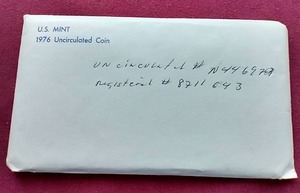 U.S. MINT
1976 Uncirculated Coin
uncirculated #
Registered # 8711 643